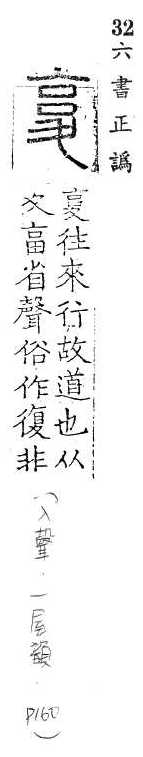 32六書正譌
㚆
㚆往來行故道也从
夊畗省聲俗作復非
(入聲．一屋韻．P160)